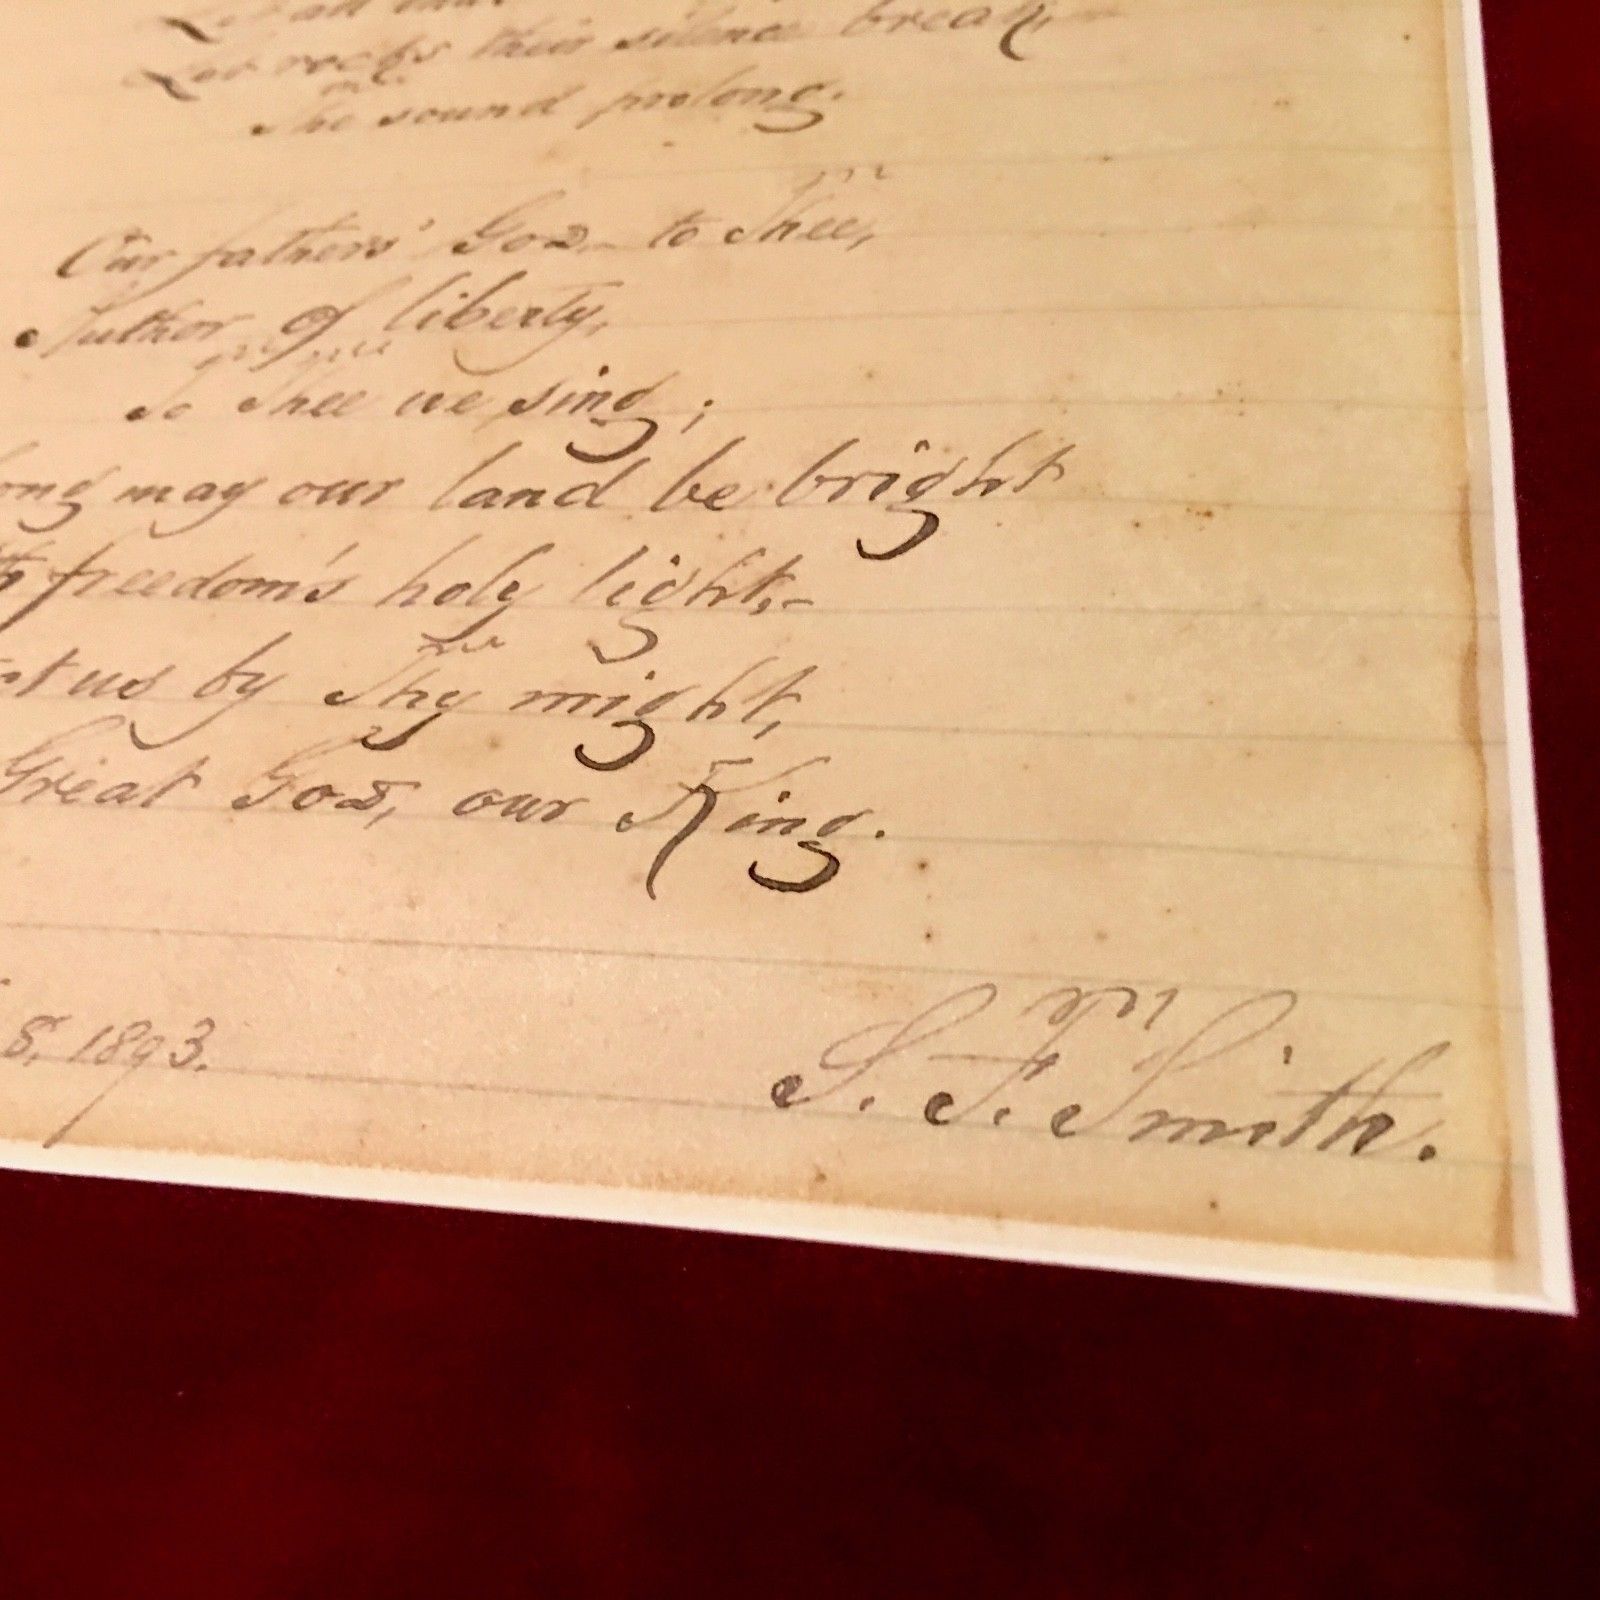 Let all that
Let rocks their silence break,
The sound prolong.
Our fathers' God to Thee,
Author of liberty,
To Thee we sing;
ong may our land be bright
th freedom's holy light,-
ct us by Thy might,
Great God, our King.
8, 1893.
S. F. Smith.